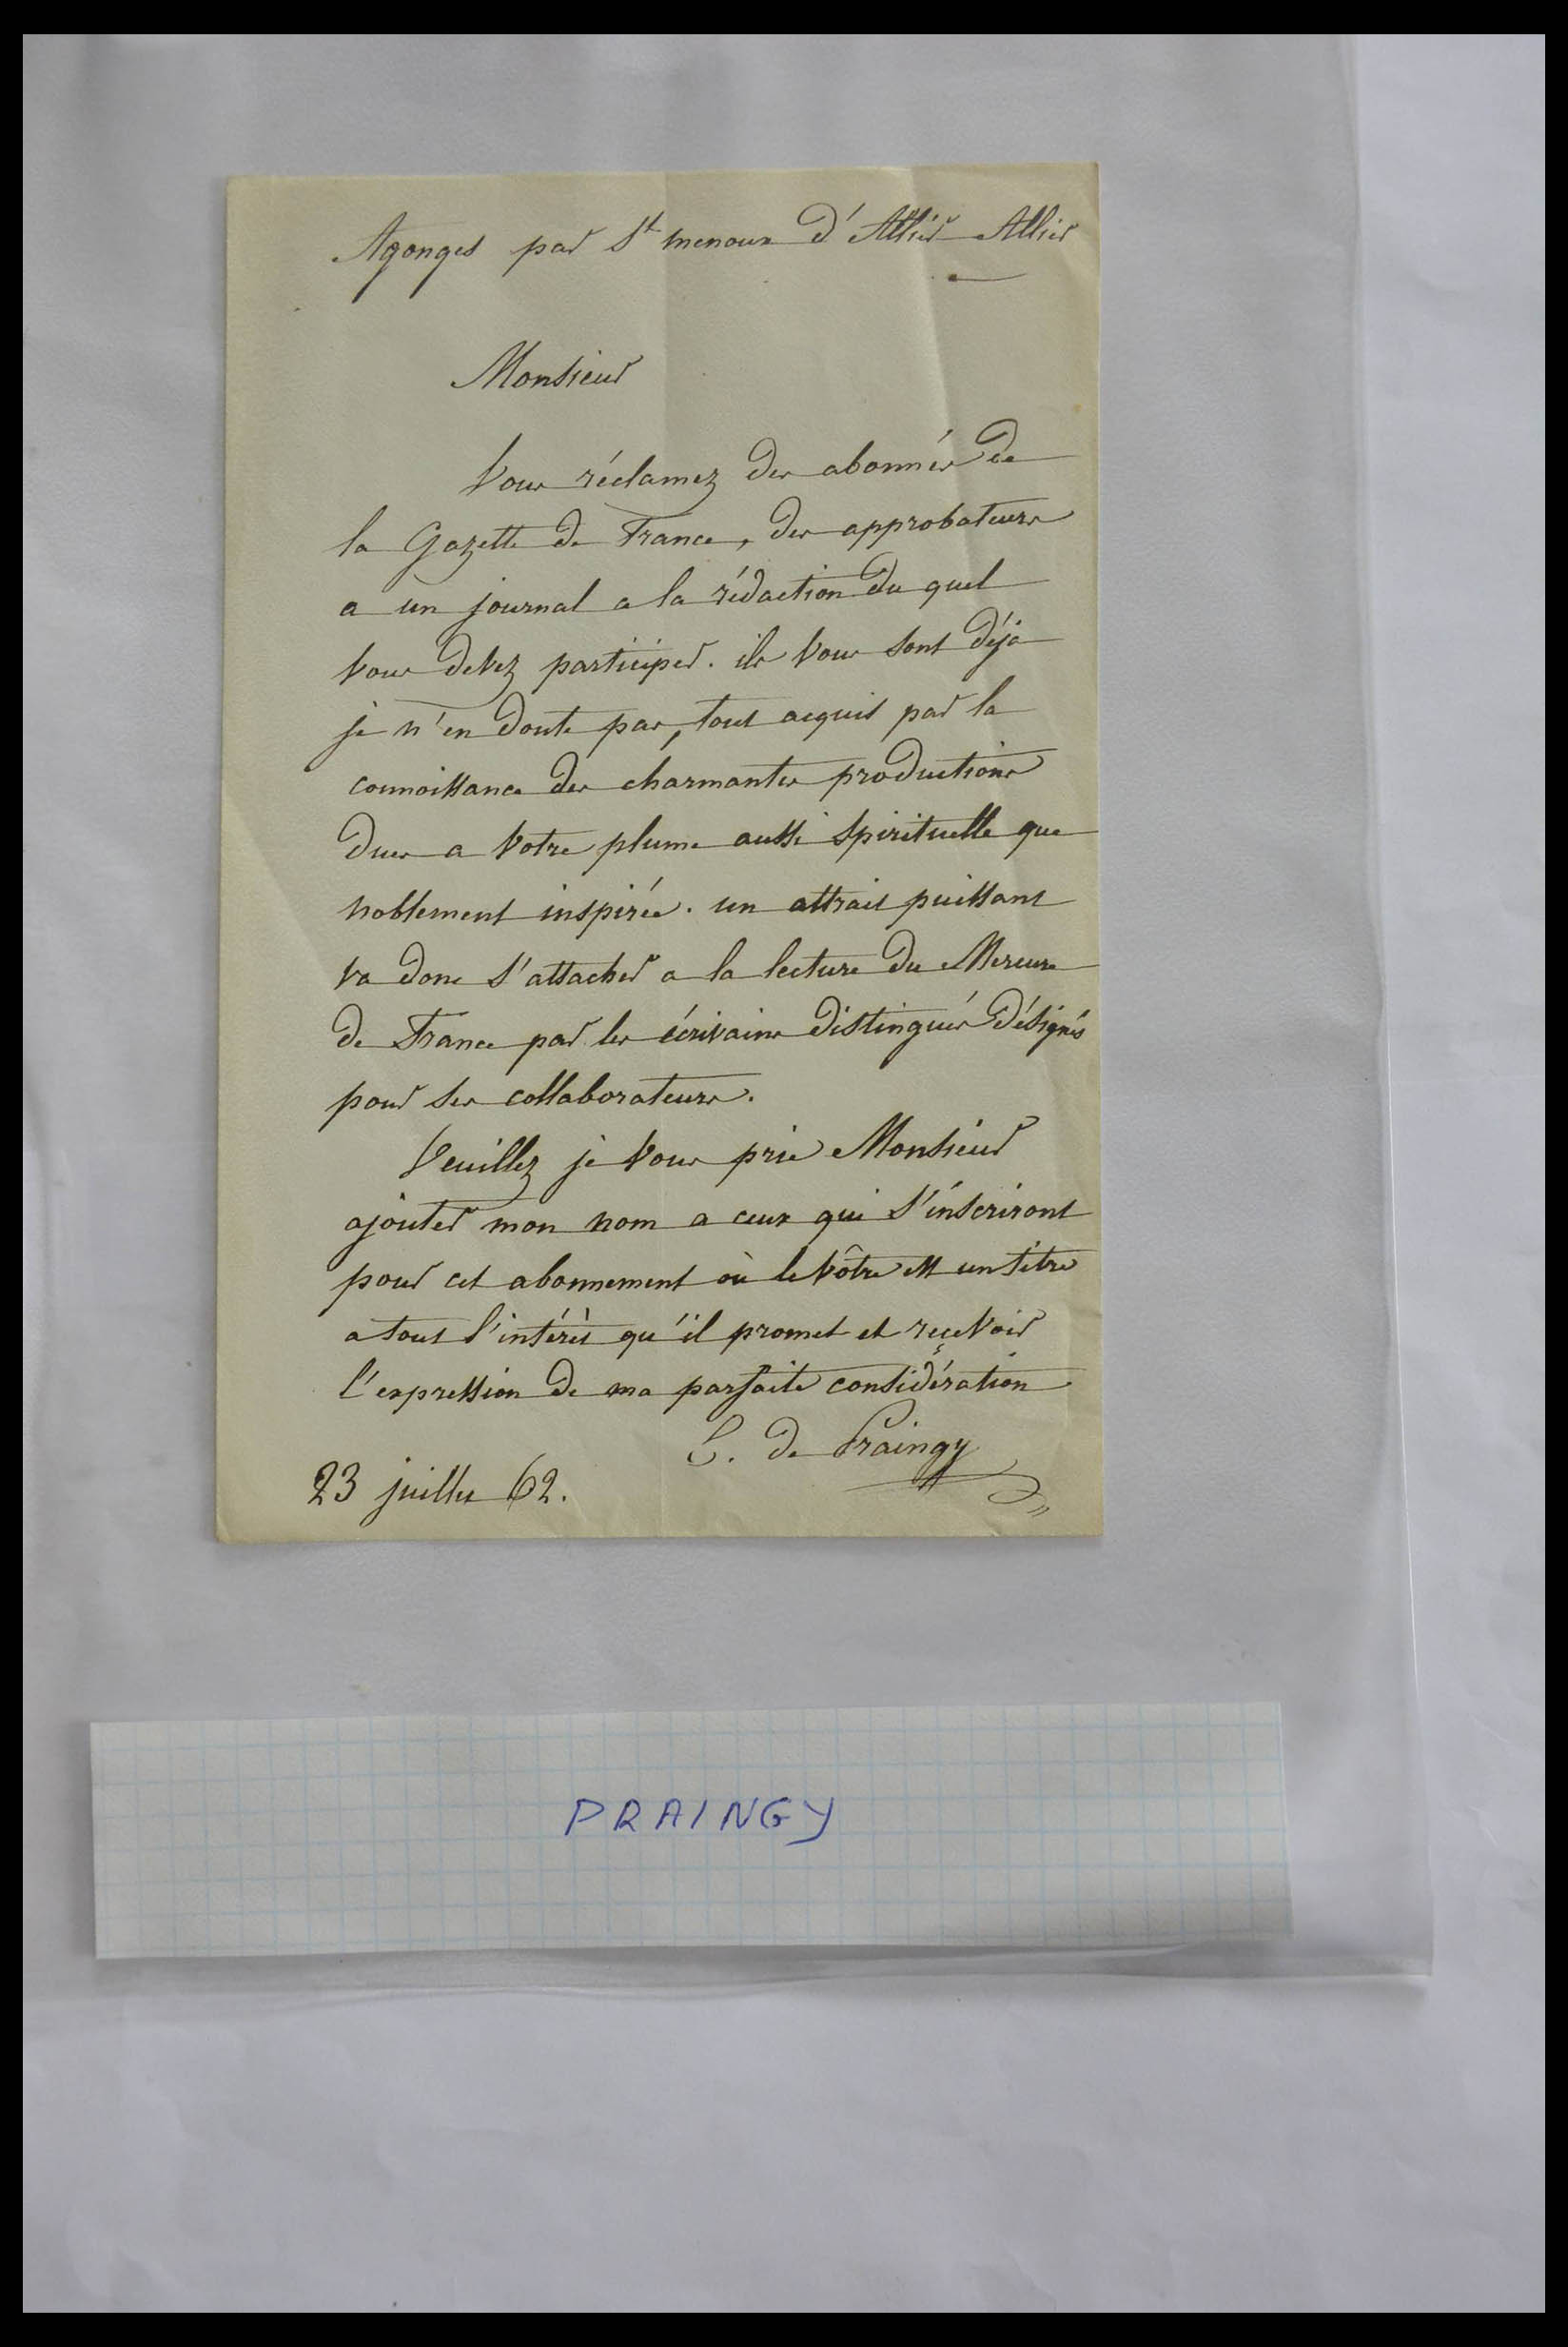 Agonges par St menoux d'Allier Allier
Monsieur
Vous réclamez des abonnés de
la Gazette de France, des approbateurs
a un journal a la rédaction du quel
vous devez participer. ils vous sont déja
je n'en doute pas, tous acquis par la
connoissance des charmantes productions
dues a votre plume aussi spirituelle que
noblement inspirée. un attrait puissant
va donc s'attacher a la lecture du Mercure
de France par les écrivains distingués désignés
pour ses collaborateurs.
Veuillez je vous prie Monsieur
ajouter mon nom a ceux qui s'inscriront
pour cet abonnement où le vôtre est un titre
a tout l'intérèt qu'il promet et reçevoir
l'expression de ma parfaite considération
de Praingy
23 juillet 62.
PRAINGY